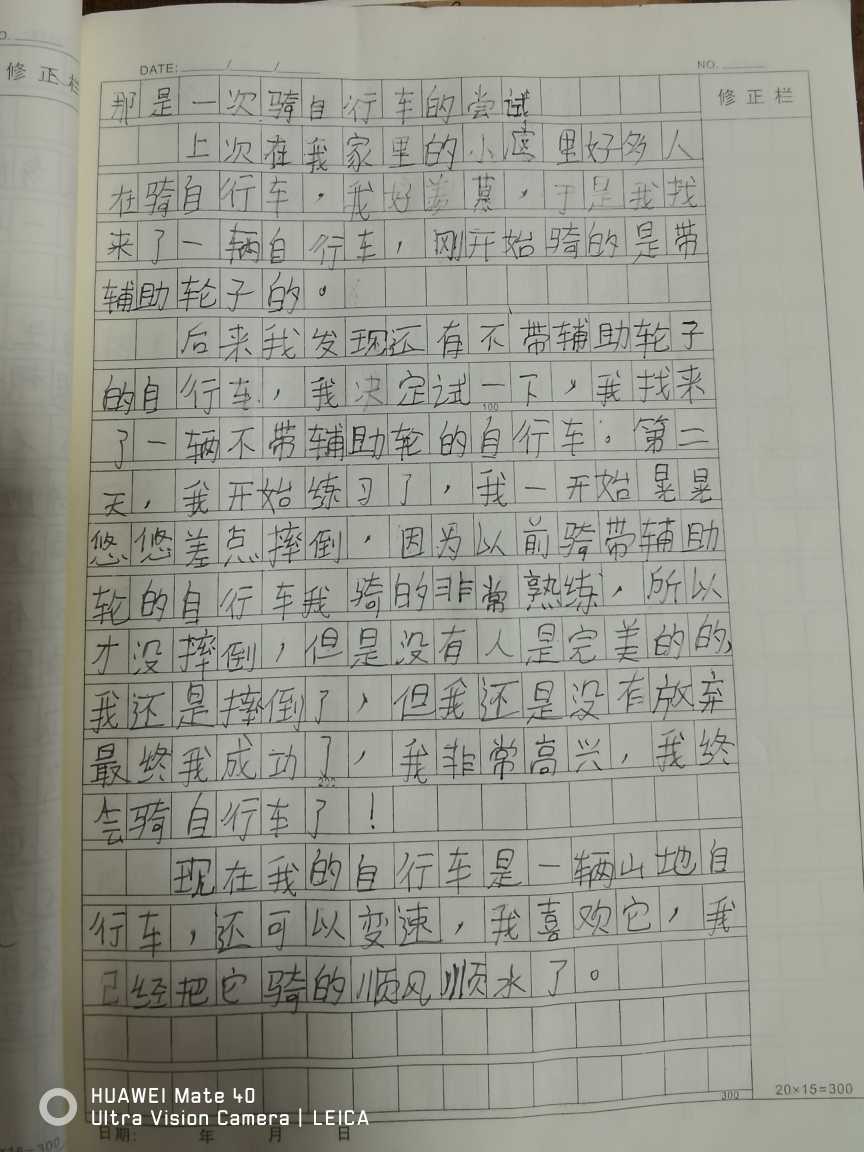 DATE: / /
NO.
修正栏
修正栏
那是一次骑自行车的尝试
上次在我家里的小区里好多人
在骑自行车，我好羡慕，于是我找
来了一辆自行车，刚开始骑的是带
辅助轮子的。
后来我发现还有不带辅助轮子
的自行车，我决定试一下，我找来
100
了一辆不带辅助轮的自行车。第二
天，我开始练习了，我一开始晃晃
悠悠差点摔倒，因为以前骑带辅助
轮的自行车我骑的非常熟练，所以
才没摔倒，但是没有人是完美的的，
我还是摔倒了，但我还是没有放弃
最终我成功了，我非常高兴，我终
200
会骑自行车了！
现在我的自行车是一辆山地自
行车，还可以变速，我喜欢它，我
已经把它骑的顺风顺水了。
300
20×15=300
日期： 年 月 日
HUAWEI Mate 40
Ultra Vision Camera | LEICA